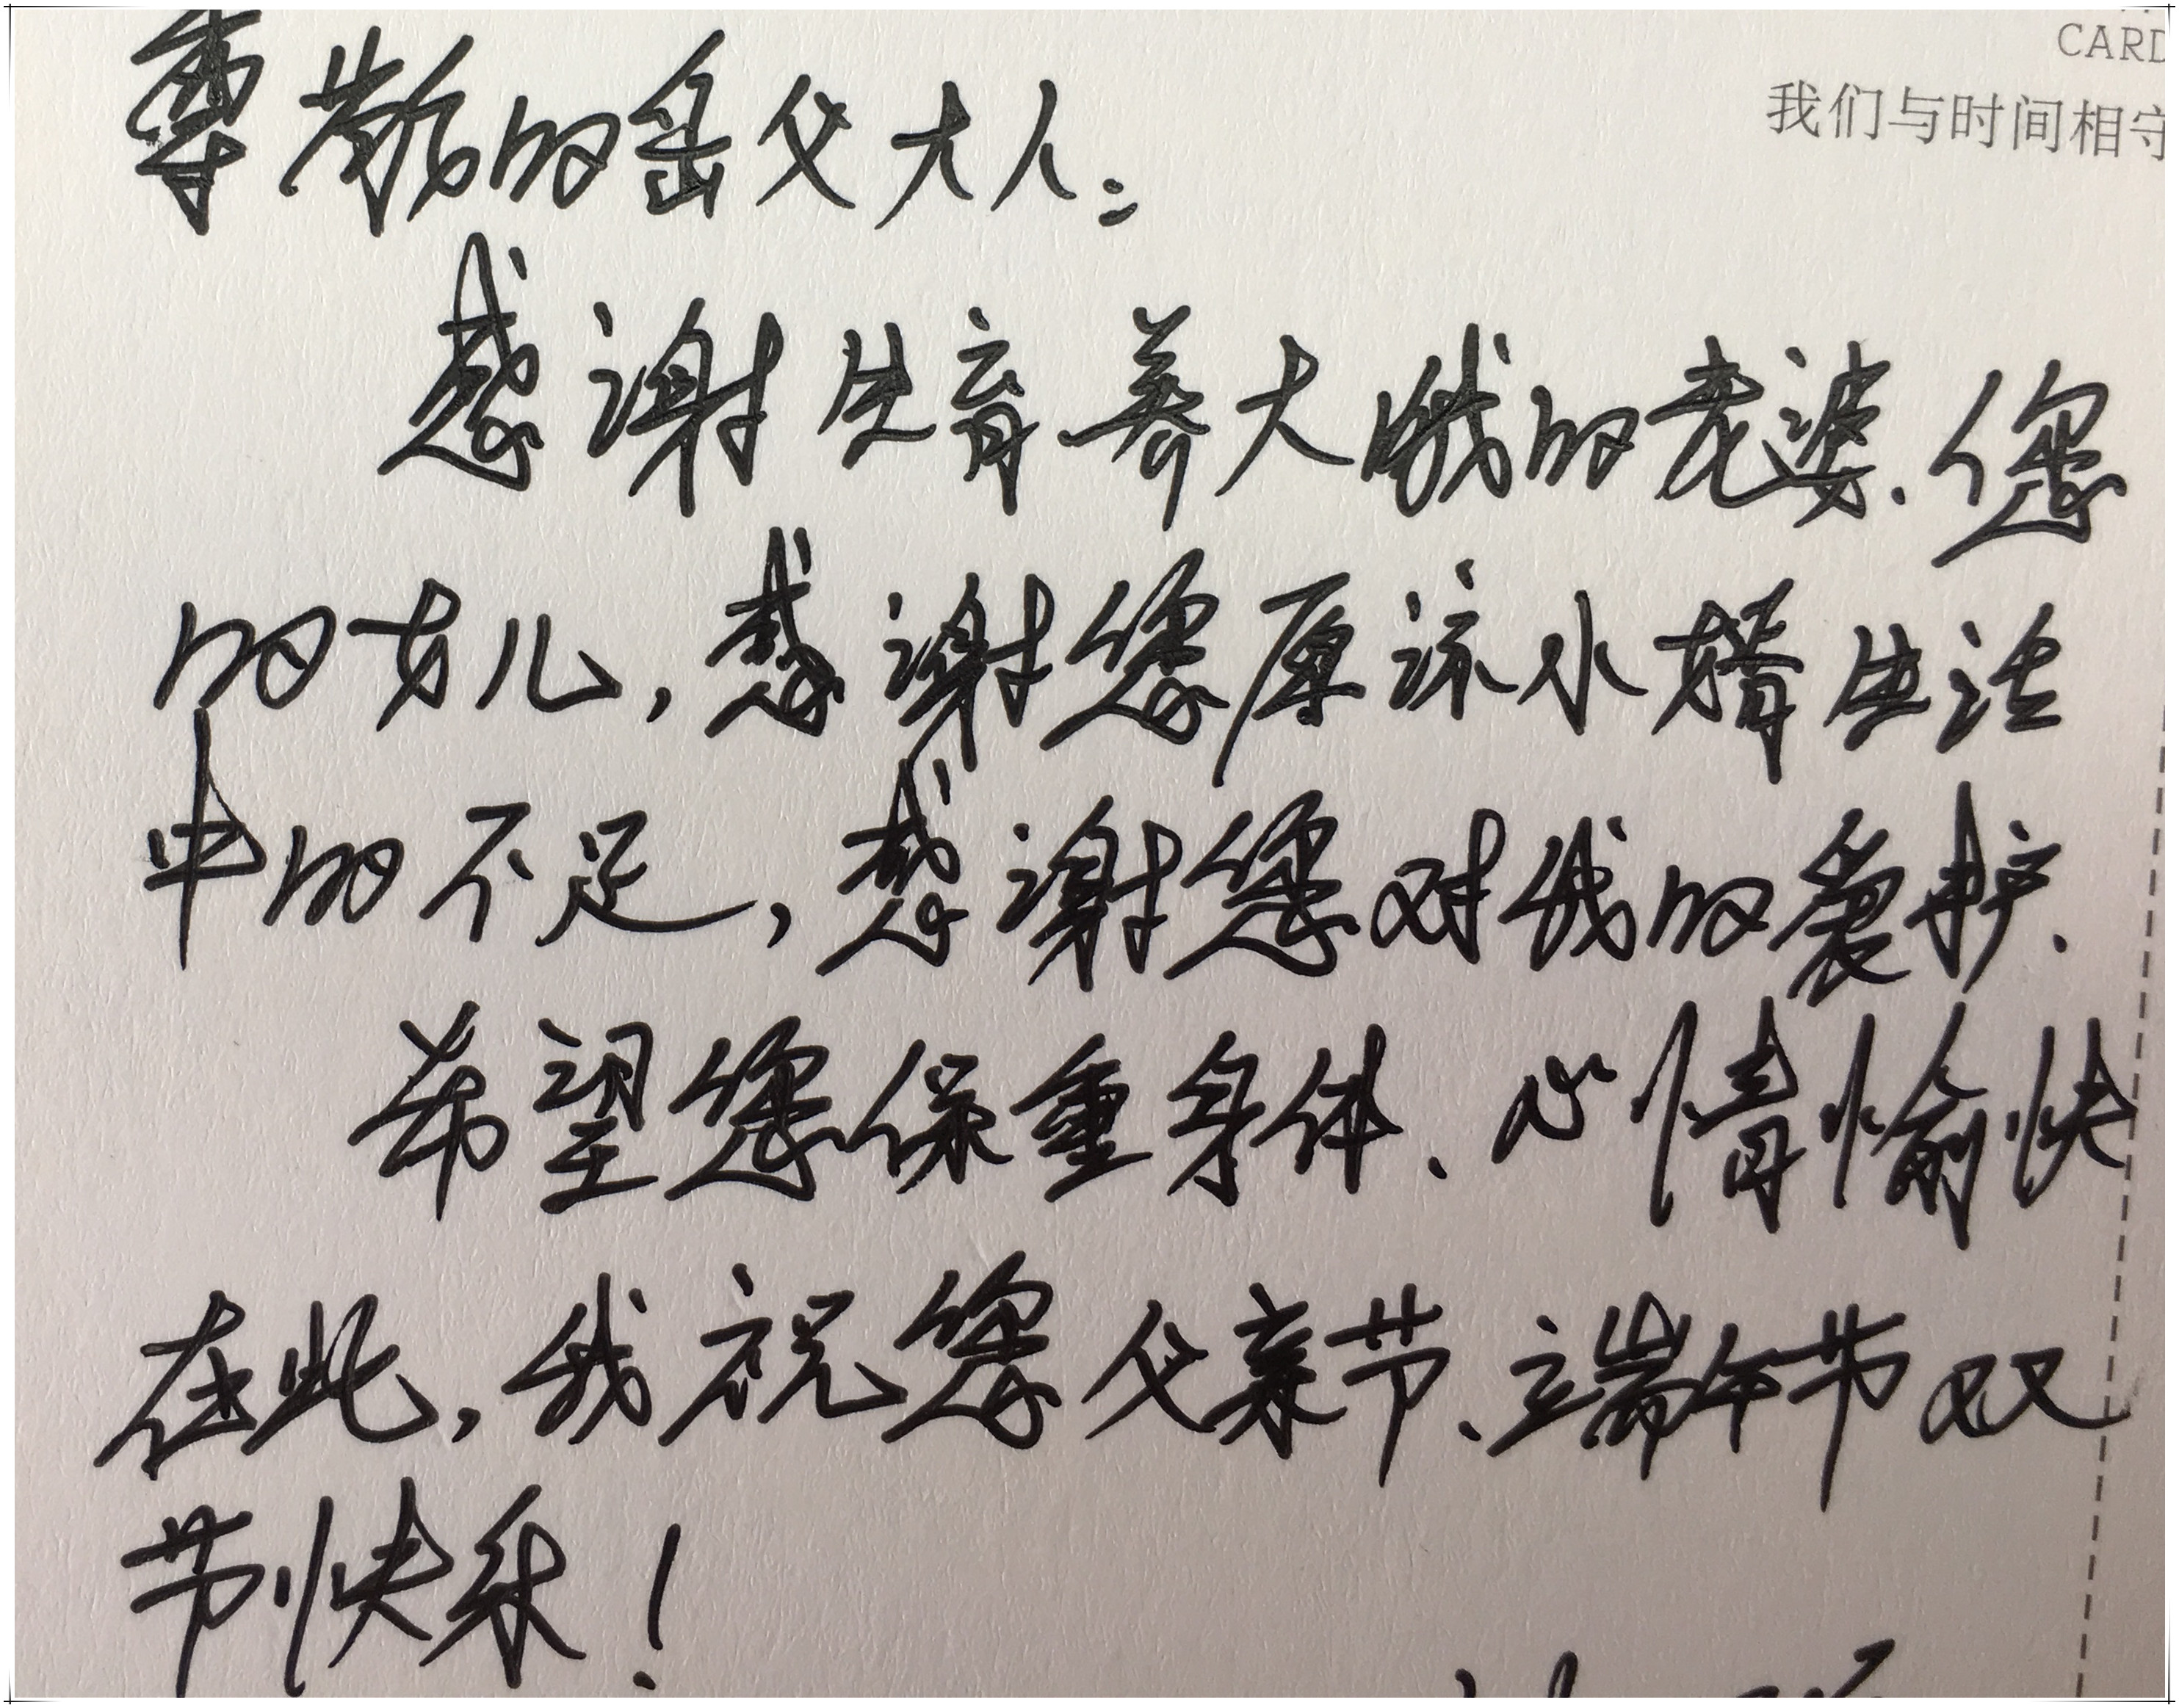 CARD
我们与时间相守
尊敬的岳父大人：
感谢生育养大我的老婆、您
的女儿，感谢您原谅小婿生活
中的不足，感谢您对我的爱护.
希望您保重身体、心情愉快
在此，我祝您父亲节、端午节双
节快乐！